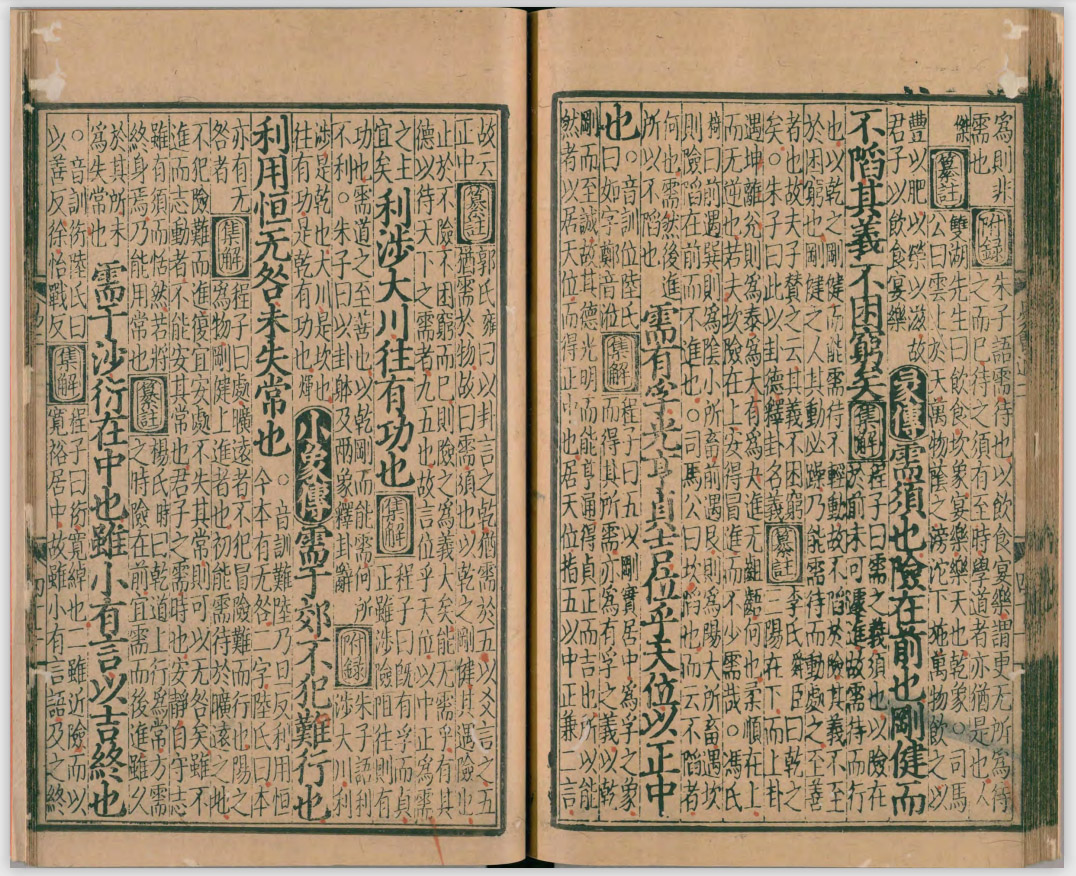 為則非
需也
附錄
朱子語需待也以飲食宴樂謂更无所為待
之而已待之須有至時學道者亦猶是也
傑
纂註
雙湖先生曰飲食坎象宴樂樂天也乾象○司馬
公曰雲上於天萬物䕃之滂沱下施萬物飲之以
豐以肥以榮以滋故
君子以飲食宴樂
彖傳
需須也險在前也剛健而
不陷其義不困窮矣
集解
程子曰需之義須也以險在
於前未可遽進故需待而行
也以乾之剛健而能需待不輕動故不陷於險其義不至
於困窮也剛健之人其動必躁乃能需待而動處之至善
者也故夫子贊之云其義不困窮
矣○朱子曰此以卦德釋卦名義
纂註
李氏舜臣曰乾之
二陽在下而上卦
遇坤離分則為泰為大有為夬進无齟齬何也柔順在上
而无逆也若夫坎險在上安得冒進而不少需哉○馮氏
椅曰前遇巽則為陰小所畜前遇艮則為陽大所畜遇坎
則險陷在前而不進也○司馬公曰以陷也而云不陷者
何也需然後進
所以不陷也
需有孚光亨貞吉位乎天位以正中
也
○音訓位陸氏
曰如字鄭音涖
集解
程子曰五以剛實居中為孚之象
而得其所需亦為有孚之義以乾
剛而至誠故其德光明而能亨通得貞正而吉也所以能
然者以居天位而得正中也居天位指五以中正兼二言
故云
正中
纂註
郭氏雍曰以卦言之乾猶需於五以爻言之五
猶需於物故曰需須也以乾之剛健其遇險也
止於不險不困窮而已則險之為義大矣能无需乎其
德以待天下之需者九五也故言位乎天位以中正為需
之主
宜矣
利涉大川往有功也
集解
程子曰既有孚而貞
正雖涉險阻往則有
功也需道之至善也以乾剛而能需何所
不利○朱子曰以卦體及兩象釋卦辭
附錄
朱子語利
涉大川利
涉是乾也大川是坎也
往有功是乾有功也煇
小象傳
需于郊不犯難行也
利用恒无咎未失常也
○音訓難陸乃旦反利用恒
今本有无咎二字陸氏曰本
亦有无
咎者
集解
程子曰處曠遠者不犯冒險難而行也陽之
為物剛健上進者也初能需待於曠遠之地
不犯險難而進復宜安處不失其常則可以无咎矣雖不
進而志動者不能安其常也君子之需時也安靜自守志
雖有須而恬然若將
終身焉乃能用常也
纂註
楊氏時曰乾道上行為常方需
之時險在前宜需而後進雖久
於其所未
為失常也
需于沙衍在中也雖小有言以吉終也
○音訓衍陸氏曰
以善反徐怡戰反
集解
程子曰衍寬綽也二雖近險而以
寬裕居中故雖小有言語乃之終